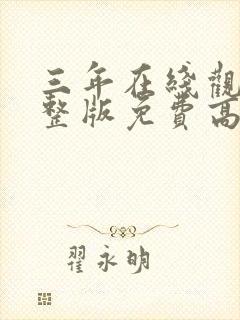 三年在线觀
整版免費高
翟永明